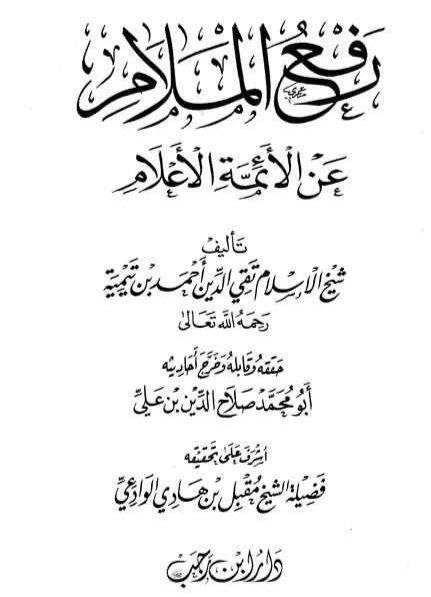 رَفْعُ المَلَامِ
عَنِ الأَئِمَّةِ الأَعْلَامِ
تَأليف
شَيْخ الإِسْلَام تَقِي الدِّين أَحْمَد بن تَيْمِيَة
رَحِمَهُ اللهُ تَعَالَىٰ
حَقَّقَهُ وَقَابَلَهُ وَخَرَّجَ أَحَادِيثَه
أَبُو مُحَمَّد صَلَاحُ الدِّين بن عَلِيّ
أَشرَفَ عَلَىٰ تَحْقِيقِه
فَضِيلَة الشَّيْخ مُقْبِل بن هَادِي الوَادِعِيّ
دَار ابْن رَجَب